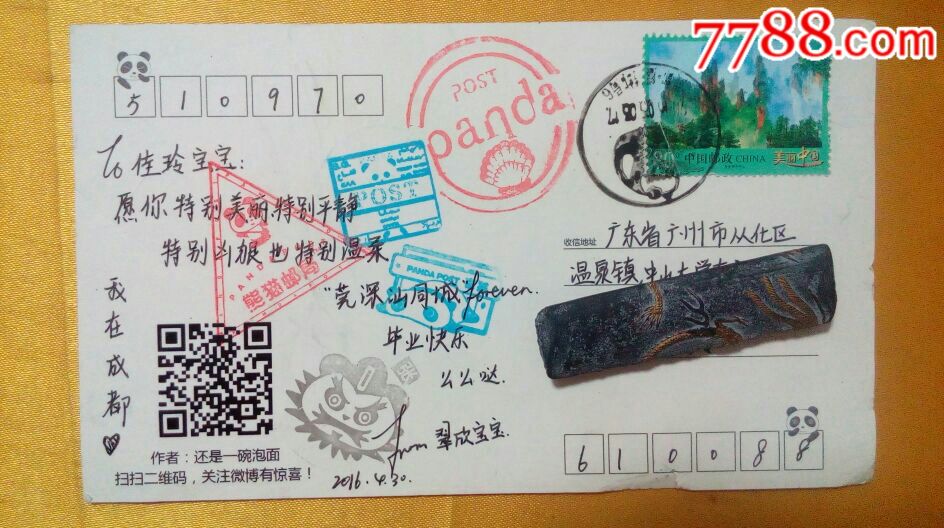 7788.com
510970
POST
panda
中国邮政 CHINA 美丽中国
To 佳玲宝宝:
愿你特别美丽,特别平静
特别凶狠也特别温柔
POST
PANDA
熊猫邮局
PANDA POST
"莞深汕同城"forever.
毕业快乐
么么哒.
from 翠欣宝宝.
2016.4.30.
我在成都
收信地址 广东省广州市从化区
温泉镇,中山大学
作者:还是一碗泡面
扫扫二维码,关注微博有惊喜!
610088